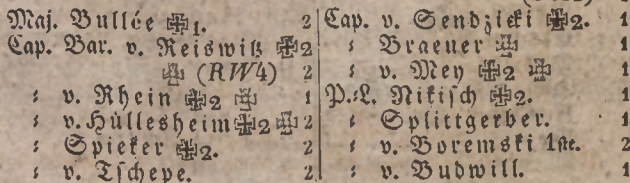 Maj. Bullée ✠1. 2
Cap. Bar. v. Reiswitz ✠2
✠ (RW4) 2
: v. Rhein ✠2 ✠ 1
: v. Hüllesheim ✠2 ✠ 2
: Spieker ✠2. 2
: v. Tschepe. 2
Cap. v. Sendzicki ✠2. 1
: Braener ✠ 1
: v. Mey ✠2 ✠ 1
P.-L. Nikisch ✠2. 1
: Splittgerber. 1
: v. Boremski 1ste. 2
: v. Budwill. 1